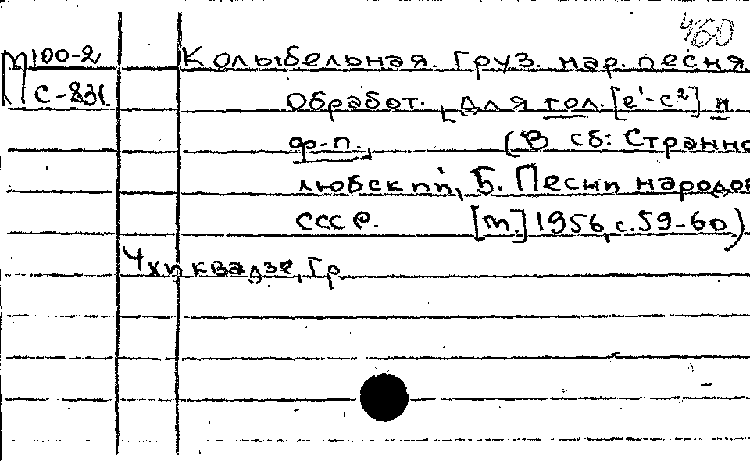 460
М100-2 Колыбельная. Груз. нар. песня
С-831 Обработ. [для гол. [e¹-c²] и
ф-п.] (В сб: Странно
любский, Б. Песни народов
СССР. [М.] 1956, с. 59-60)
Чхиквадзе, Гр.